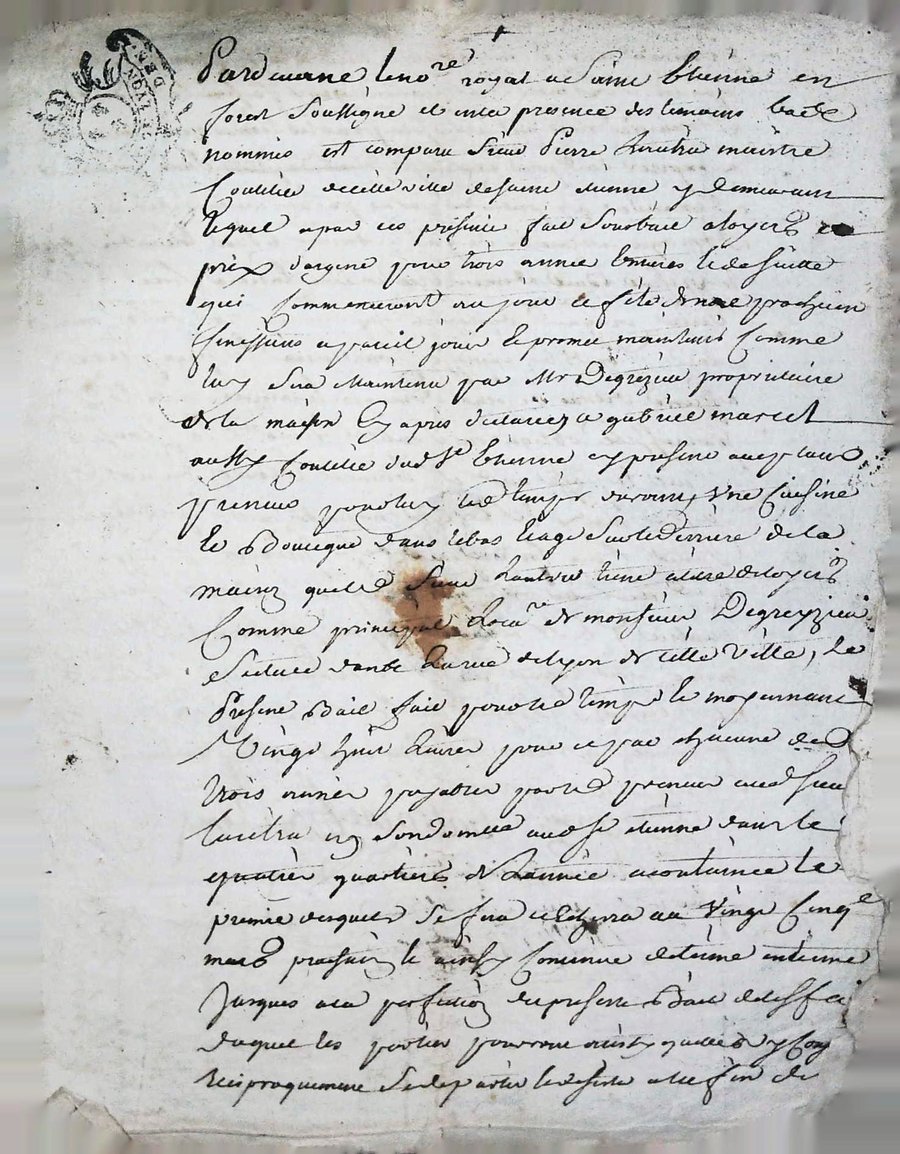 DE LYON
Pardevant le no.re royal a Saint Etienne en
forest Soussigné et en la presence des temoins bas
nommés est comparu Sieur Pierre maistre
Coutelier de cette ville de Saint etienne y demeurant
lequel a par ces presentes fait Soubail a loyers
prix d'argent pour trois année Entieres et de Suitte
qui Commenceront au jour et fête de prochain
finissans a pareil jour Et promet maintenir Comme
luy Sera Maintenu par Mr Degrezieu proprietaire
de la maison Cy apres declarée a gabriel marcel
aussy Coutelier dud St Etienne cy present acceptant
preneur pour led temps durant, Une Cuisine
et Boutique dans le bas Etage Sur le derriere de la
maison que led Sieur tient a titre de loyers
Comme principal Loca.re de monsieur Degreyzieu
Scituée dans La rue de lyon de cette Ville, Le
Present Bail fait pour led temps Et moyennant
Vingt huit Livres pour et par chacune des
trois années payables par led preneur aud Sieur
en Son domicile aud St etienne dans les
quatre quartiers de L'année a coutumée le
premier desquels Se fera et Echerra au Vingt Cinq.e
mars prochain et ainsy Continuer de terme en terme
Jusques a la perfection du present Bail
duquel les parties pourront
reciproquement Se departir et desister a la fin de